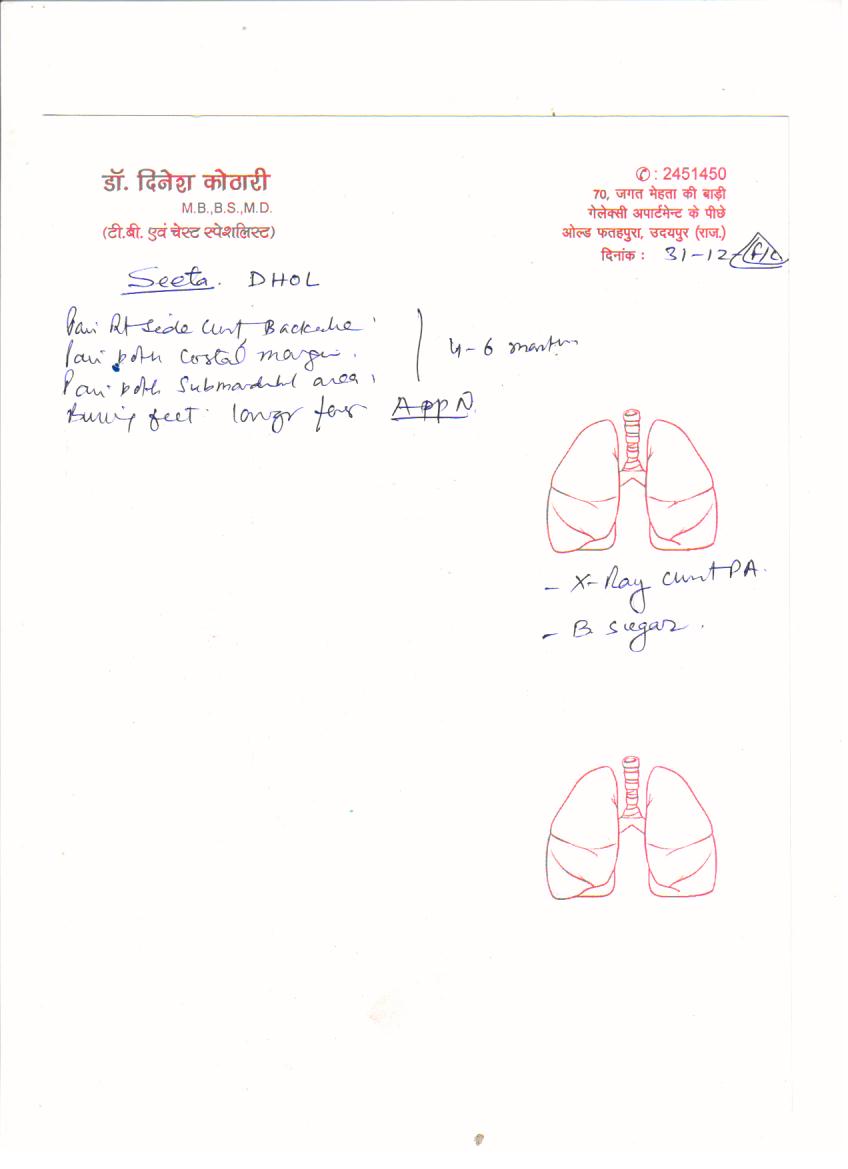 डॉ. दिनेश कोठारी
M.B.,B.S.,M.D.
(टी.बी. एवं चेस्ट स्पेशलिस्ट)
✆ : 2451450
70, जगत मेहता की बाड़ी
गेलेक्सी अपार्टमेन्ट के पीछे
ओल्ड फतहपुरा, उदयपुर (राज.)
दिनांक : 31-12
Seeta. DHOL
Pain Rt Side Chest, Backache
Pain both costal margin.
Pain both Submandibul area,
4-6 months
Burning feet. App N.
- X-Ray Chest PA.
- B. Sugar.